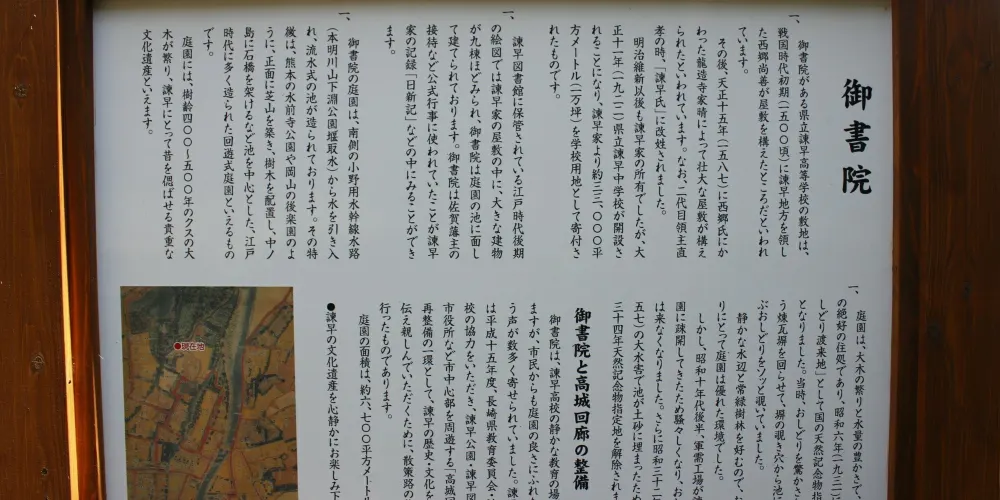 御書院
一、
御書院がある県立諫早高等学校の敷地は、
戦国時代初期(一五〇〇頃)に諫早地方を領し
た西郷尚善が屋敷を構えたところだといわれ
ています。
その後、天正十五年(一五八七)に西郷氏にか
わった龍造寺家晴によって壮大な屋敷が構え
られたといわれています。なお、二代目領主直
孝の時、「諫早氏」に改姓されました。
明治維新以後も諫早家の所有でしたが、大
正十一年(一九二二)県立諫早中学校が開設さ
れることになり、諫早家より約三三、〇〇〇平
方メートル(一万坪)を学校用地として寄付さ
れたものです。
一、
諫早図書館に保管されている江戸時代後期
の絵図では諫早家の屋敷の中に、大きな建物
が九棟ほどみられ、御書院は庭園の池に面し
て建てられております。御書院は佐賀藩主の
接待など公式行事に使われていたことが諫早
家の記録「日新記」などの中にみることができ
ます。
一、
御書院の庭園は、南側の小野用水幹線水路
(本明川山下淵公園堰取水)から水を引き入
れ、流水式の池が造られております。その特
徴は、熊本の水前寺公園や岡山の後楽園のよ
うに、正面に芝山を築き、樹木を配置し、中ノ
島に石橋を架けるなど池を中心とした、江戸
時代に多く造られた回遊式庭園といえるもの
です。
庭園には、樹齢四〇〇〜五〇〇年のクスの大
木が繁り、諫早にとって昔を偲ばせる貴重な
文化遺産といえます。
一、
庭園は、大木の繁りと水量の豊かさで、
の絶好の住処であり、昭和六年(一九三一)
しどり渡来地」として国の天然記念物指
となりました。当時、おしどりを驚かさ
う煉瓦塀を回らせて、塀の覗き穴から池に
ぶおしどりをソッと覗いていました。
静かな水辺と常緑樹林を好むので、お
りにとって庭園は優れた環境でした。
しかし、昭和十年代後半、軍需工場が
園に疎開してきたため騒々しくなり、お
は来なくなりました。さらに昭和三十二
五七)の大水害で池が土砂に埋まったため
三十四年天然記念物指定地を解除されま
御書院と高城回廊の整備
御書院は、諫早高校の静かな教育の場
ますが、市民からも庭園の良さにふれ
う声が数多く寄せられていました。諫
は平成十五年度、長崎県教育委員会・
校の協力をいただき、諫早公園・諫早図
市役所など市中心部を周遊する「高城回
再整備の一環として、諫早の歴史・文化を
伝え親しんでいただくために、散策路の
行ったものであります。
庭園の面積は、約六、七〇〇平方メートル
●諫早の文化遺産を心静かにお楽しみ下
●現在地